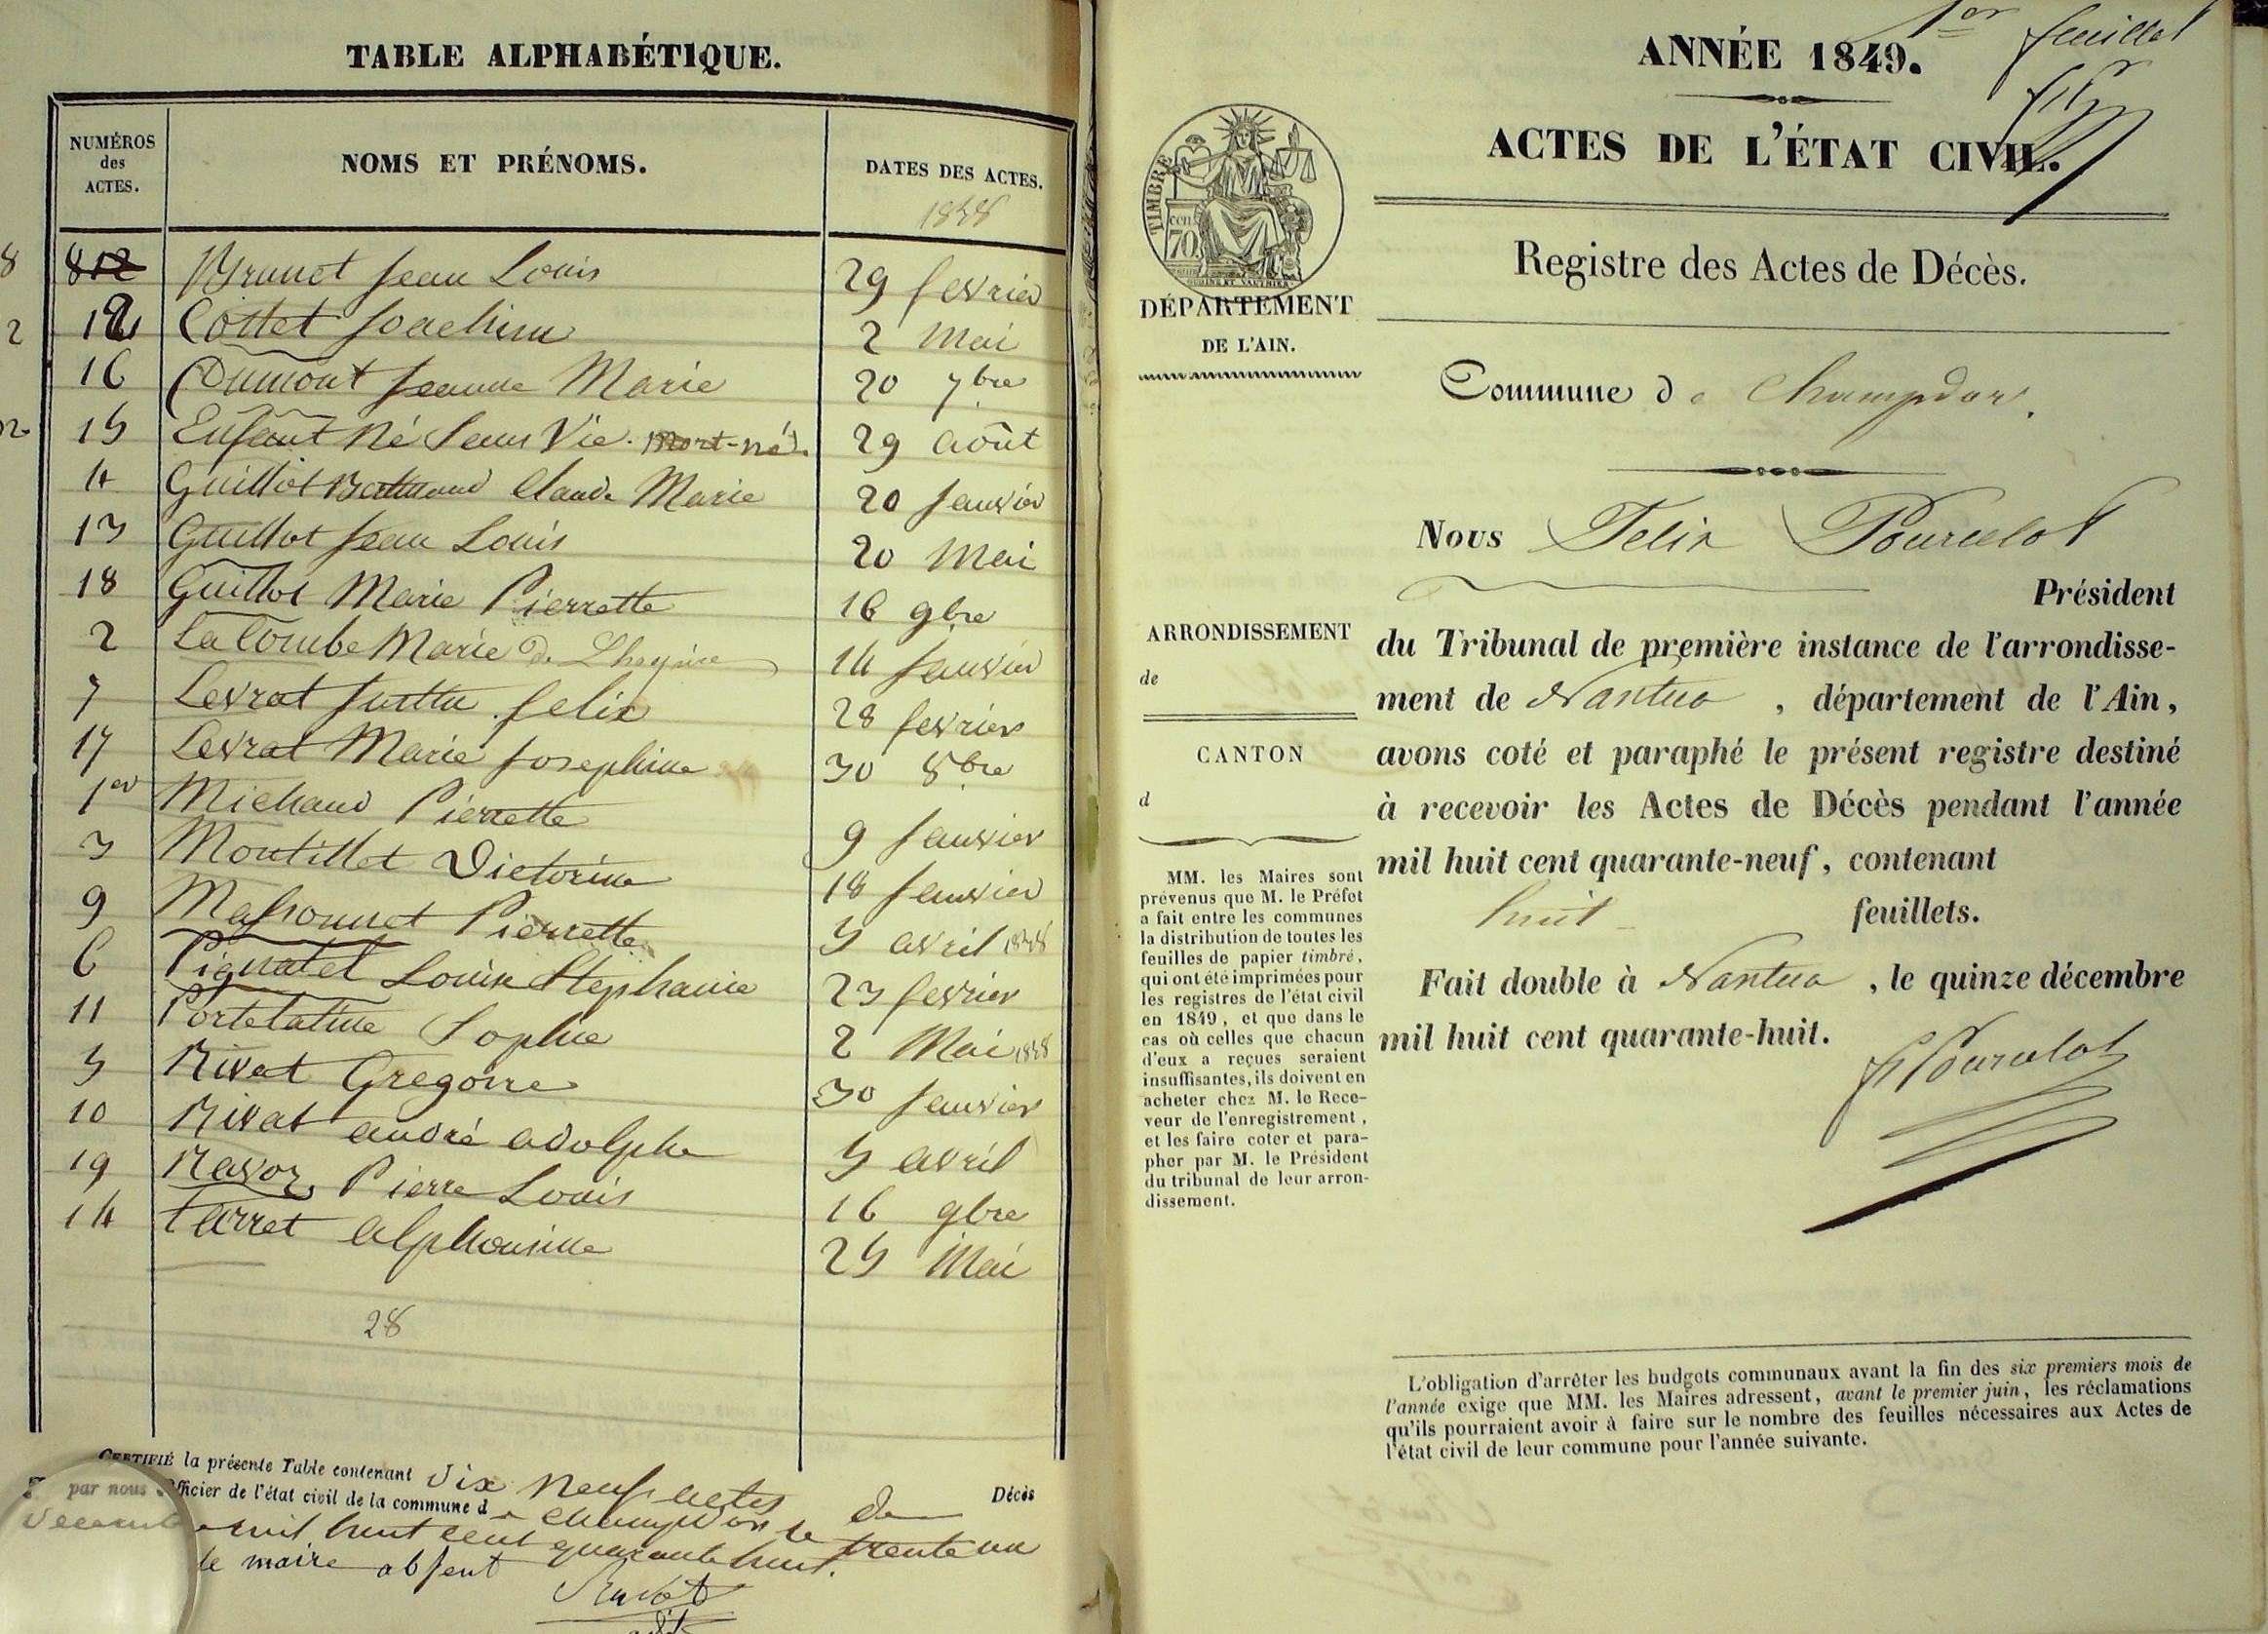 TABLE ALPHABÉTIQUE.
NUMÉROS des ACTES.
NOMS ET PRÉNOMS.
DATES DES ACTES.
1848
8 Brunet Jean Louis 29 fevrier
12 Cottet Joachim 2 Mai
16 Dumont Jeanne Marie 20 7bre
15 Enfant Né Sans Vie. Mort-né. 29 août
4 Guillot Claude Marie 20 Janvier
13 Guillot Jean Louis 20 Mai
18 Guillot Marie Pierrette 16 9bre
2 La Combe Marie 14 Janvier
7 Levrat felix 28 fevrier
17 Levrat Marie Josephine 30 8bre
1er Michaud Pierrette 9 Janvier
3 Montillet Victorine 18 Janvier
9 Massonnet Pierrette 5 avril 1848
6 Pignatel Louise Stephanie 23 fevrier
11 Portelatine Sophie 2 Mai 1848
5 Rivat Gregoire 30 Janvier
10 Rivat andré adolphe 5 avril
19 Ravoz Pierre Louis 16 9bre
14 tarret alphonsine 25 Mai
28
CERTIFIÉ la présente Table contenant dix neuf actes de Décès
par nous Officier de l'état civil de la commune de Champdor le trente un
decembre mil huit cent quarante huit.
le maire absent
1er feuillet
ANNÉE 1849.
ACTES DE L'ÉTAT CIVIL.
TIMBRE
cen.
70
Registre des Actes de Décès.
DÉPARTEMENT
DE L'AIN.
Commune de Champdor.
Nous Felix Pourcelot
Président
ARRONDISSEMENT
de
CANTON
d
du Tribunal de première instance de l'arrondisse-
ment de Nantua, département de l'Ain,
avons coté et paraphé le présent registre destiné
à recevoir les Actes de Décès pendant l'année
mil huit cent quarante-neuf, contenant
huit feuillets.
Fait double à Nantua, le quinze décembre
mil huit cent quarante-huit.
F Pourcelot
MM. les Maires sont
prévenus que M. le Préfet
a fait entre les communes
la distribution de toutes les
feuilles de papier timbré,
qui ont été imprimées pour
les registres de l'état civil
en 1849, et que dans le
cas où celles que chacun
d'eux a reçues seraient
insuffisantes, ils doivent en
acheter chez M. le Rece-
veur de l'enregistrement,
et les faire coter et para-
pher par M. le Président
du tribunal de leur arron-
dissement.
L'obligation d'arrêter les budgets communaux avant la fin des six premiers mois de
l'année exige que MM. les Maires adressent, avant le premier juin, les réclamations
qu'ils pourraient avoir à faire sur le nombre des feuilles nécessaires aux Actes de
l'état civil de leur commune pour l'année suivante.